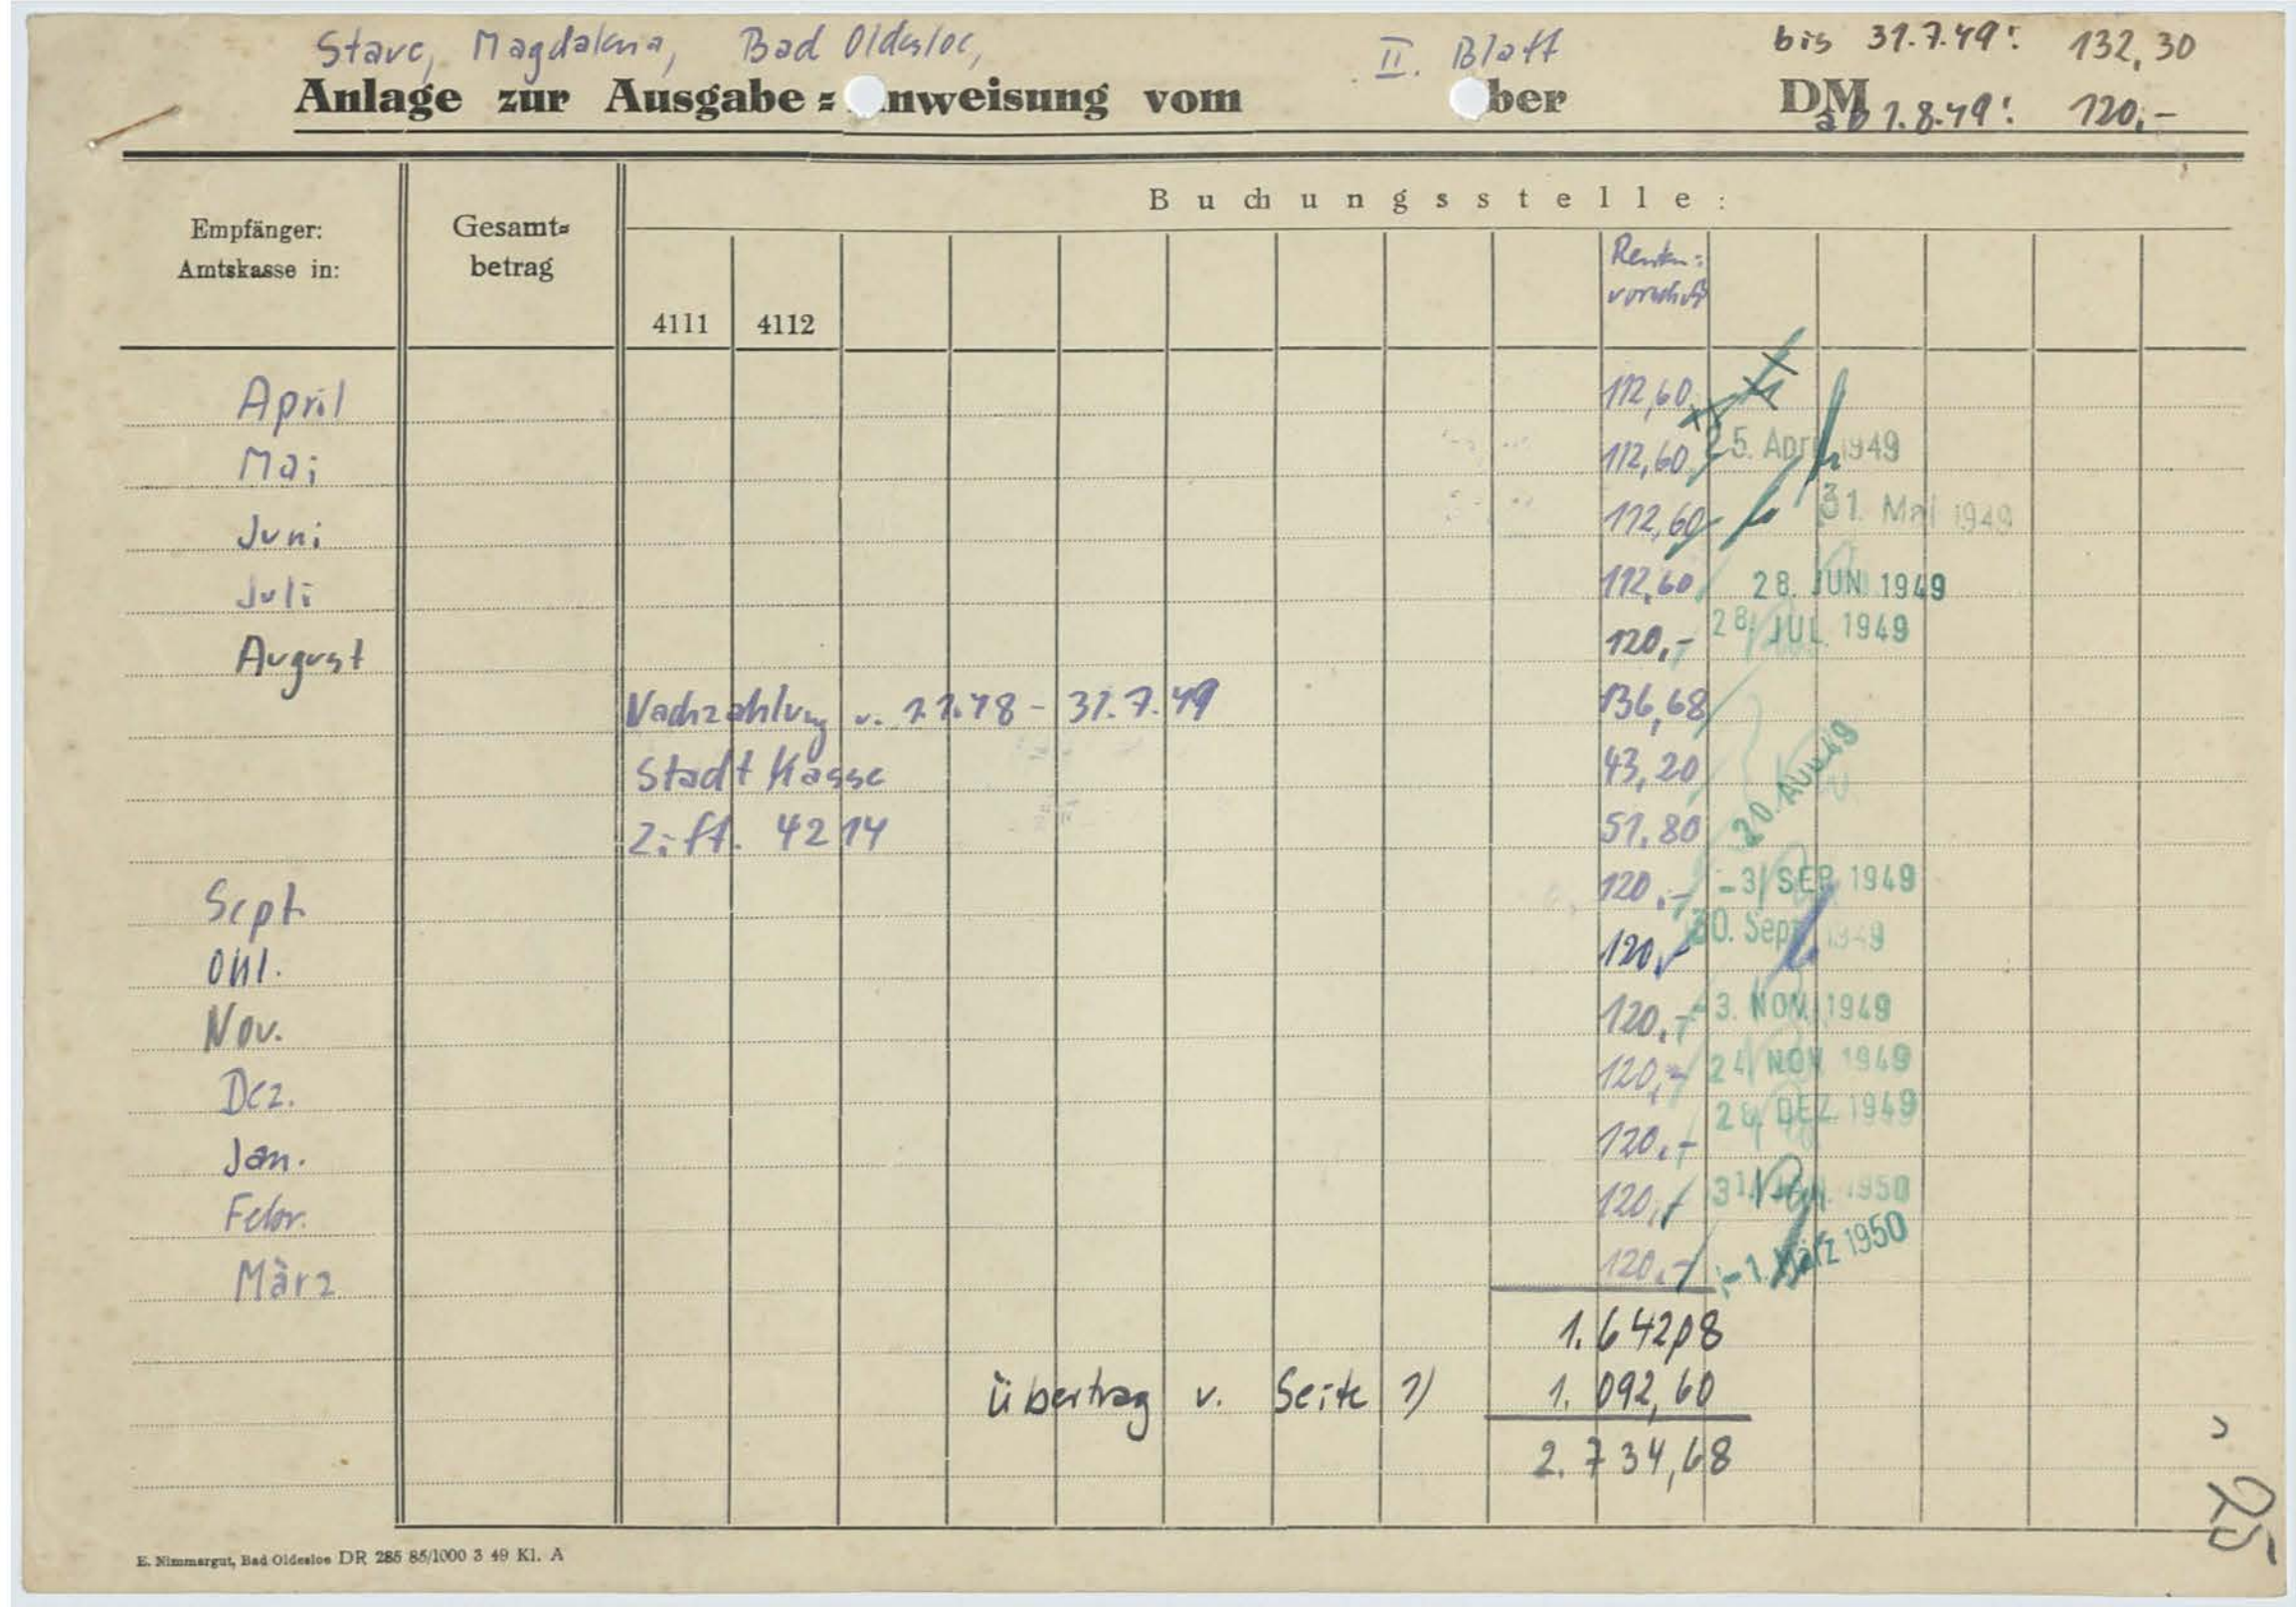 Stave, Magdalena, Bad Oldesloe, II. Blatt bis 31.7.49: 132,30
Anlage zur Ausgabe= nweisung vom ber DM ab 1.8.49: 120,-
Buchungsstelle:
Empfänger: Amtskasse in: Gesamt= betrag 4111 4112 Renten= vorschuß
April 112,60
Mai 112,60 25. April 1949
Juni 112,60 31. Mai 1949
Juli 112,60 28. JUN 1949
August 120,- 28. JUL. 1949
Nachzahlung v. 1.1.48 - 31.7.49 136,68
Stadt Kasse 43,20
Ziff. 4214 51,80
Sept. 120,- -3. SEP. 1949
Okt. 120, 30. Sept. 1949
Nov. 120,- -3. NOV. 1949
Dez. 120,- 24. NOV. 1949
Jan. 120,- DEZ. 1949
Febr. 120,- 31. JAN. 1950
März 120,- -1. März 1950
1.642,08
Übertrag v. Seite 1) 1.092,60
2.734,68
E. Nimmergut, Bad Oldesloe DR 285 85/1000 3 49 Kl. A